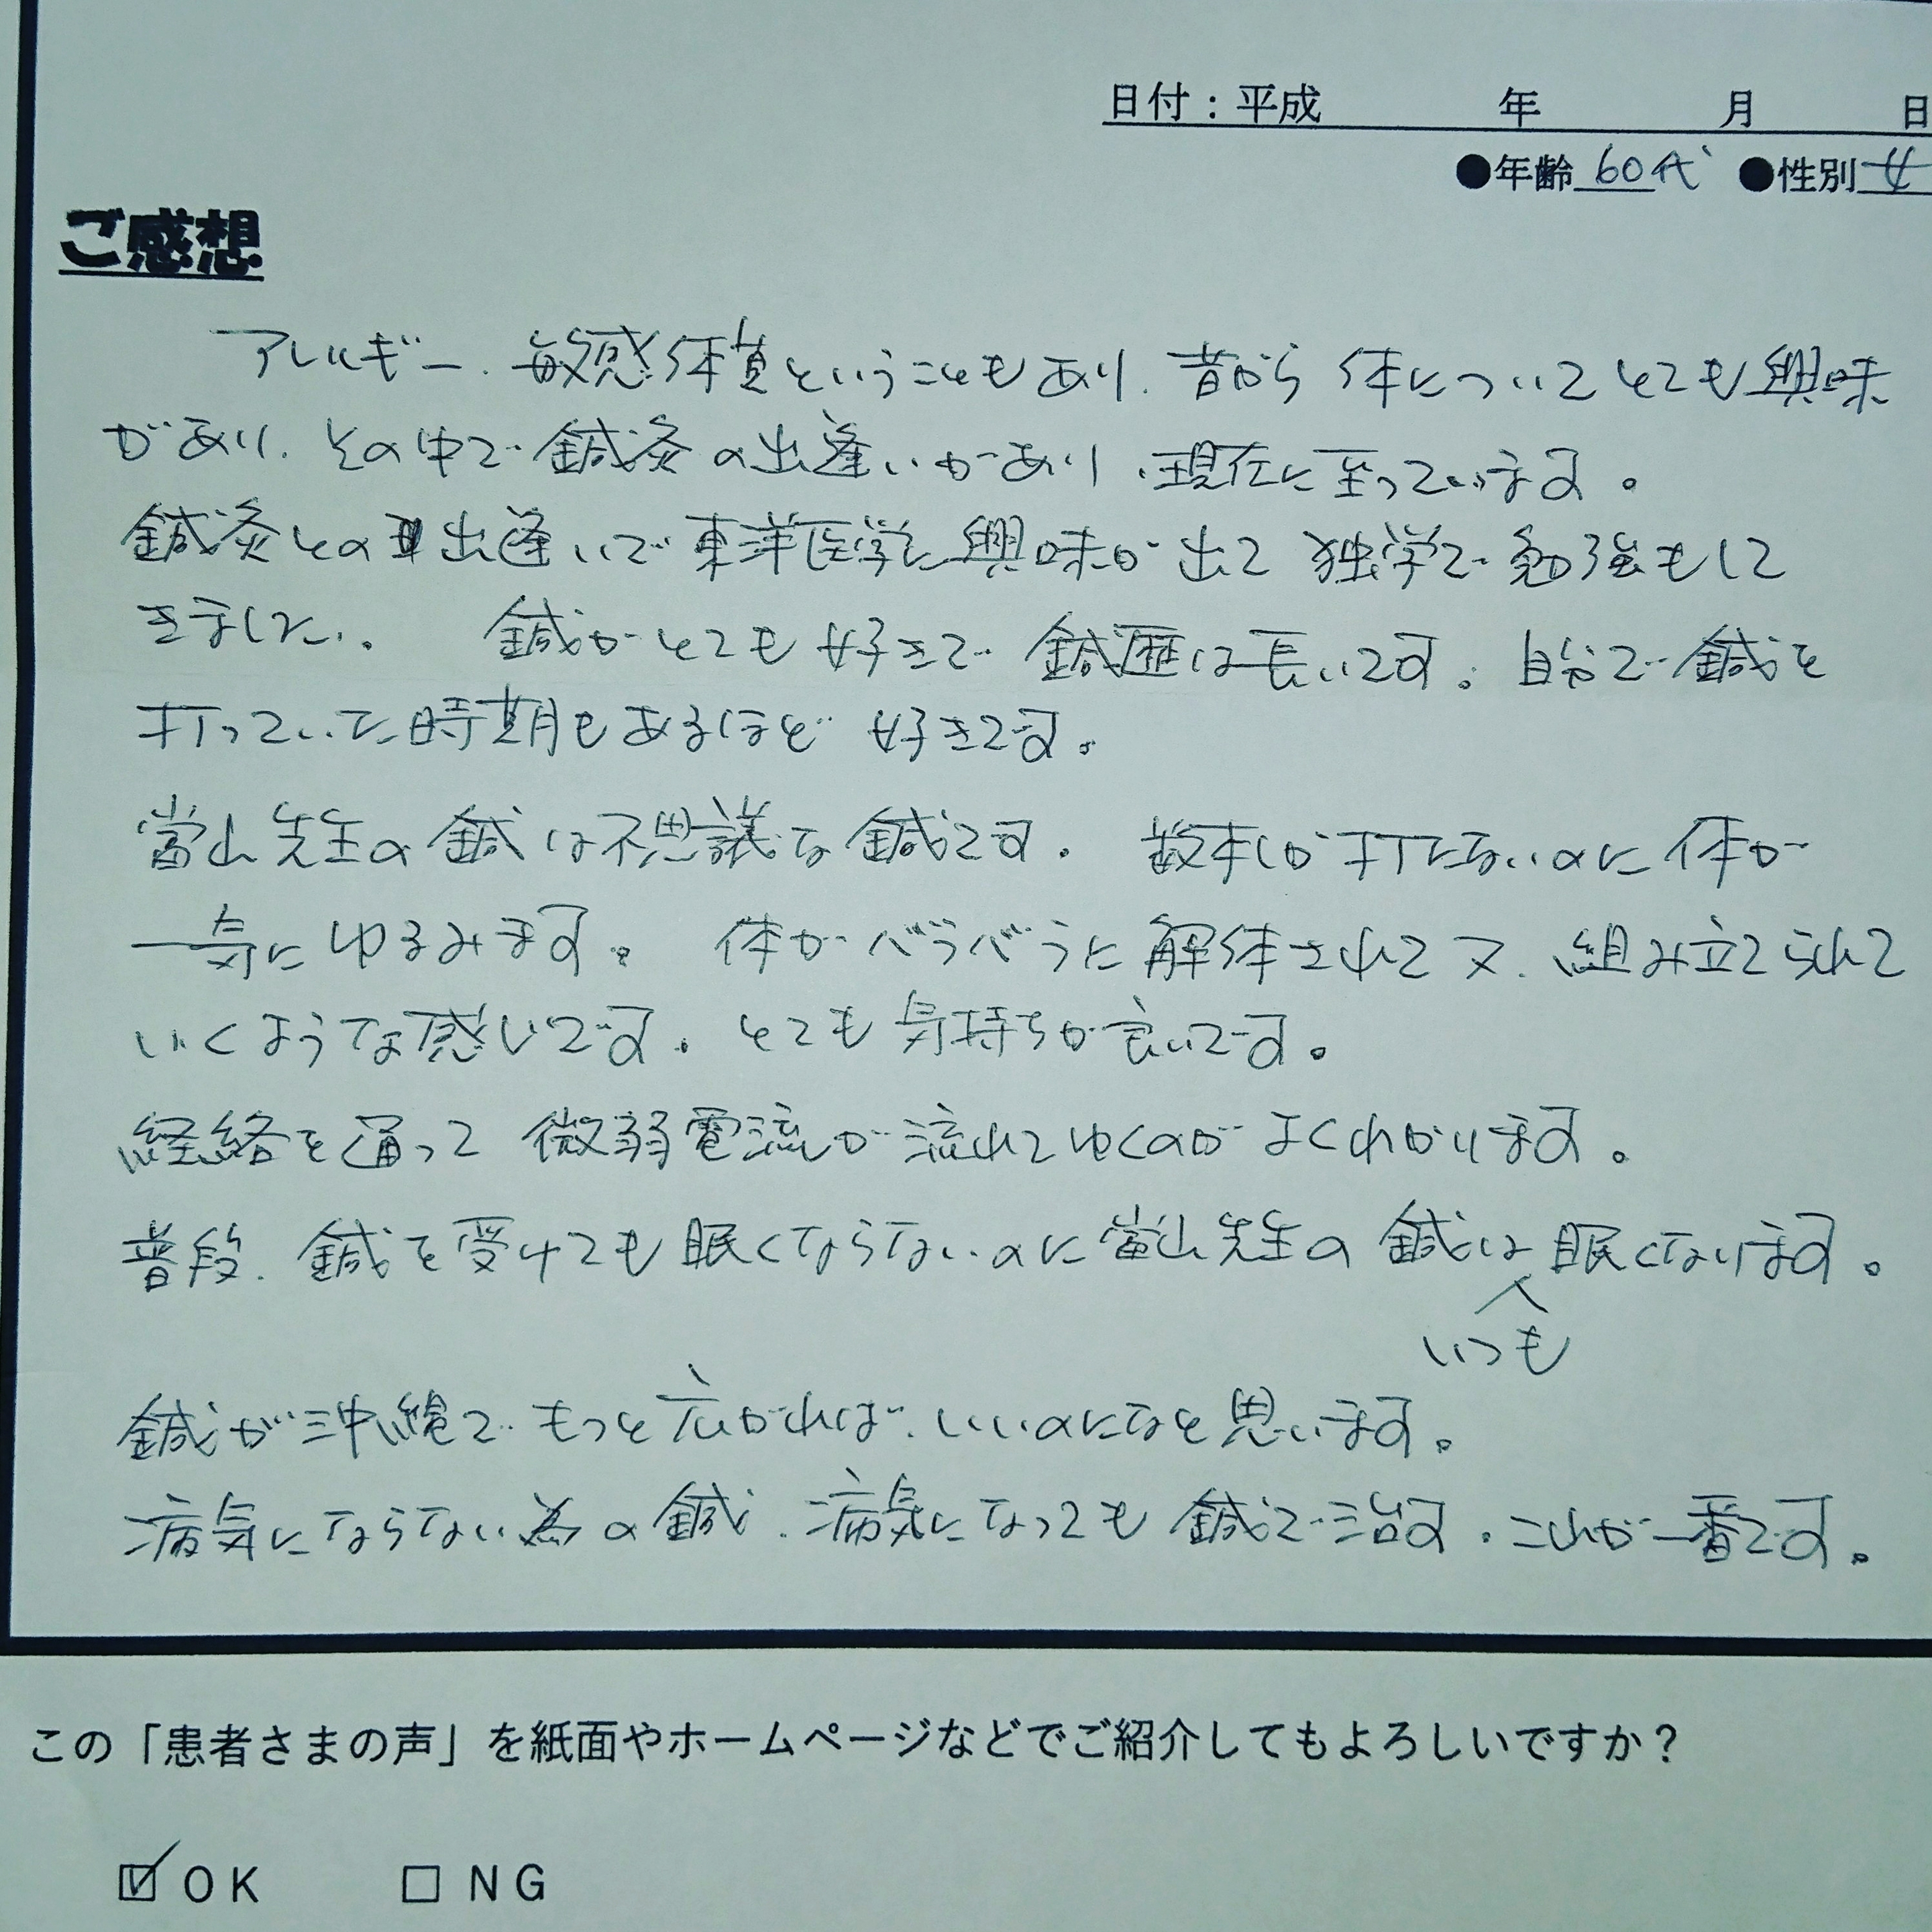 日付：平成　年　月　日
●年齢 60代 ●性別 女
ご感想
アレルギー、敏感体質ということもあり、昔から体についてとても興味
があり、その中で鍼灸の出逢いがあり、現在に至っています。
鍼灸との出逢いで東洋医学に興味が出て独学で勉強もして
きました。 鍼がとても好きで鍼歴は長いです。自分で鍼を
打っていた時期もあるほど好きです。
當山先生の鍼は不思議な鍼です。 数本しか打たないのに体が
一気にゆるみます。 体がバラバラに解体されて又、組み立てられて
いくような感じです。とても気持ちが良いです。
経絡を通って微弱電流が流れてゆくのがよくわかります。
普段、鍼を受けても眠くならないのに當山先生の鍼はいつも眠くなります。
鍼が沖縄で、もっと広がれば、いいのになと思います。
病気にならない為の鍼、病気になっても鍼で治す。これが一番です。
この「患者さまの声」を紙面やホームページなどでご紹介してもよろしいですか？
☑OK □NG